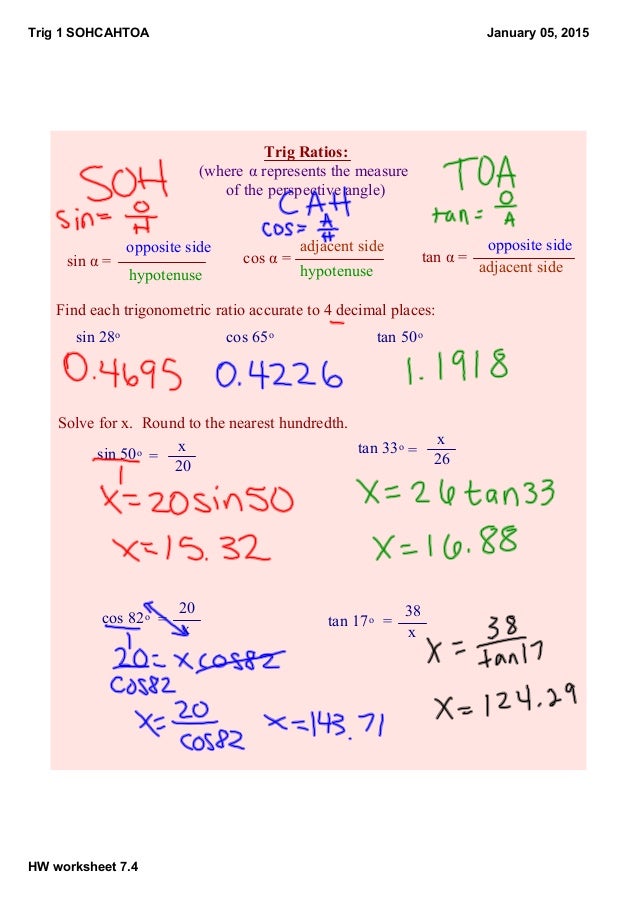 Trig 1 SOHCAHTOA January 05, 2015
Trig Ratios:
(where α represents the measure
of the perspective angle)
SOH
sin = O/H
CAH
cos = A/H
TOA
tan = O/A
sin α = opposite side / hypotenuse
cos α = adjacent side / hypotenuse
tan α = opposite side / adjacent side
Find each trigonometric ratio accurate to 4 decimal places:
sin 28° cos 65° tan 50°
0.4695 0.4226 1.1918
Solve for x. Round to the nearest hundredth.
sin 50° = x/20
1
x=20sin50
x=15.32
tan 33° = x/26
x=26tan33
x=16.88
cos 82° = 20/x
1
20=xcos82
cos82
x=20/cos82 x=143.71
tan 17° = 38/x
x=38/tan17
x=124.29
HW worksheet 7.4